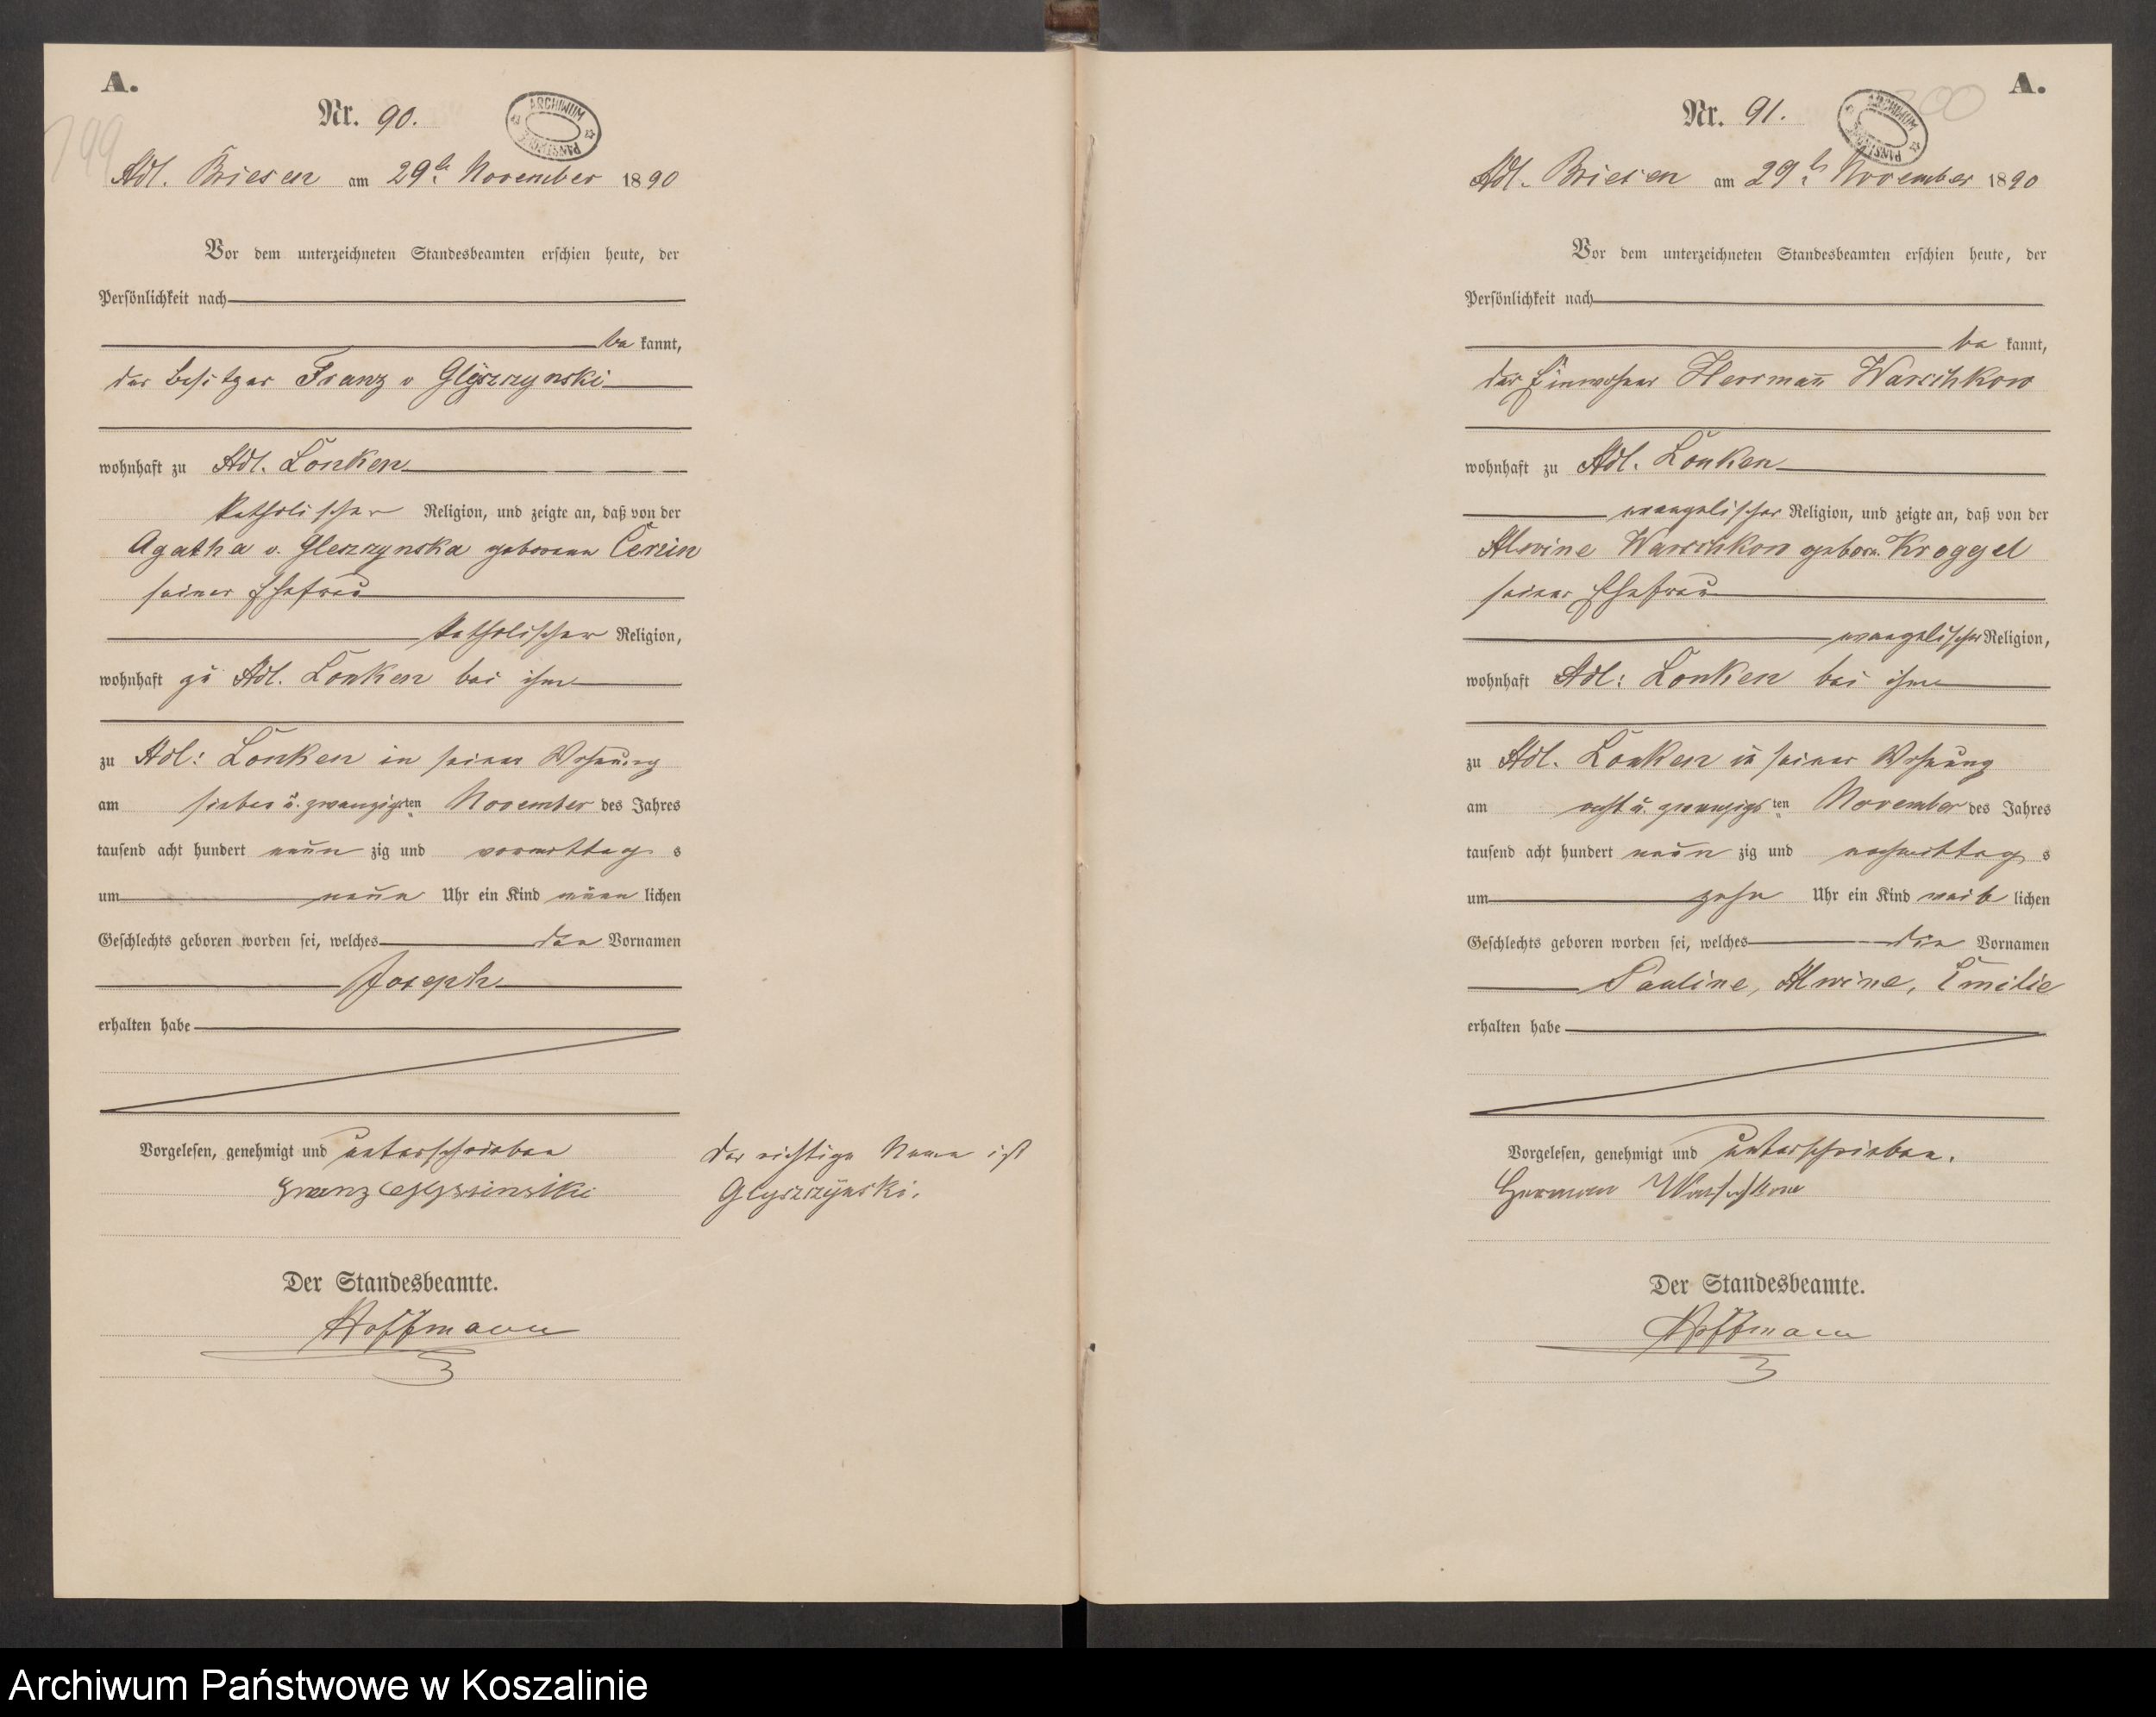 A.
199
Nr. 90.
ARCHIWUM PAŃSTWOWE
Adl. Briesen am 29t. November 1890
Vor dem unterzeichneten Standesbeamten erschien heute, der
Persönlichkeit nach
be kannt,
der Besitzer Franz v Glyszczynski
wohnhaft zu Adl. Lonken
katholischer Religion, und zeigte an, daß von der
Agatha v. Gleszczynska geborene
seiner Ehefrau
katholischer Religion,
wohnhaft zu Adl. Lonken bei ihm
zu Adl: Lonken in seiner Wohnung
am sieben u. zwanzigsten November des Jahres
tausend acht hundert neun zig und vormittag s
um neun Uhr ein Kind männ lichen
Geschlechts geboren worden sei, welches den Vornamen
Joseph
erhalten habe
Vorgelesen, genehmigt und unterschrieben
Franz
Der Standesbeamte.
Hoffmann
der richtige Name ist
Glyszczÿnski.
A.
200
Nr. 91.
ARCHIWUM PAŃSTWOWE
Adl. Briesen am 29t. November 1890
Vor dem unterzeichneten Standesbeamten erschien heute, der
Persönlichkeit nach
be kannt,
der Einwohner Herrmann Warschkow
wohnhaft zu Adl. Lonken
evangelischer Religion, und zeigte an, daß von der
Alwine Warschkow geboren. Kroggel
seiner Ehefrau
evangelischer Religion,
wohnhaft Adl: Lonken bei ihm
zu Adl. Lonken in seiner Wohnung
am acht u. zwanzigsten November des Jahres
tausend acht hundert neun zig und nachmittag s
um zehn Uhr ein Kind weib lichen
Geschlechts geboren worden sei, welches die Vornamen
Pauline, Alwine, Emilie
erhalten habe
Vorgelesen, genehmigt und unterschrieben.
Herman Warschkow
Der Standesbeamte.
Hoffmann
Archiwum Państwowe w Koszalinie